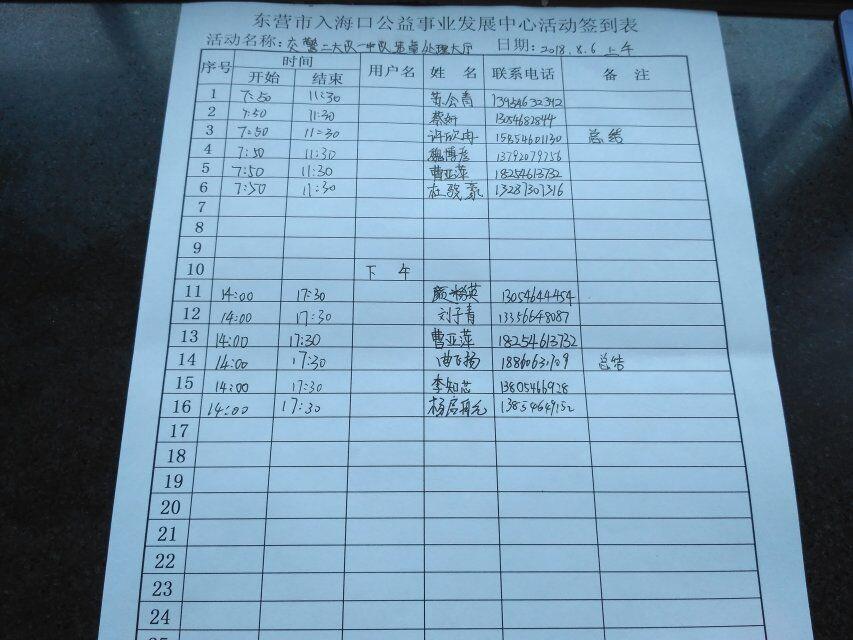 东营市入海口公益事业发展中心活动签到表
活动名称: 交警二大队一中队 处理大厅 日期: 2018.8.6 上午
序号 时间 用户名 姓名 联系电话 备注
开始 结束
1 7:50 11:30 苏会青
2 7:50 11:30 蔡妍 13054682844
3 7:50 11:30 许欣冉 15854601130 总结
4 7:50 11:30 魏博彦 13792079756
5 7:50 11:30 曹亚萍 18254613732
6 7:50 11:30 杜骏豪 13287307316
7
8
9
10 下午
11 14:00 17:30 13054644454
12 14:00 17:30 刘子青 13356648087
13 14:00 17:30 曹亚萍 18254613732
14 14:00 17:30 曲飞扬
15 14:00 17:30 李知芯 13805466928
16 14:00 17:30 13854649152
17
18
19
20
21
22
23
24